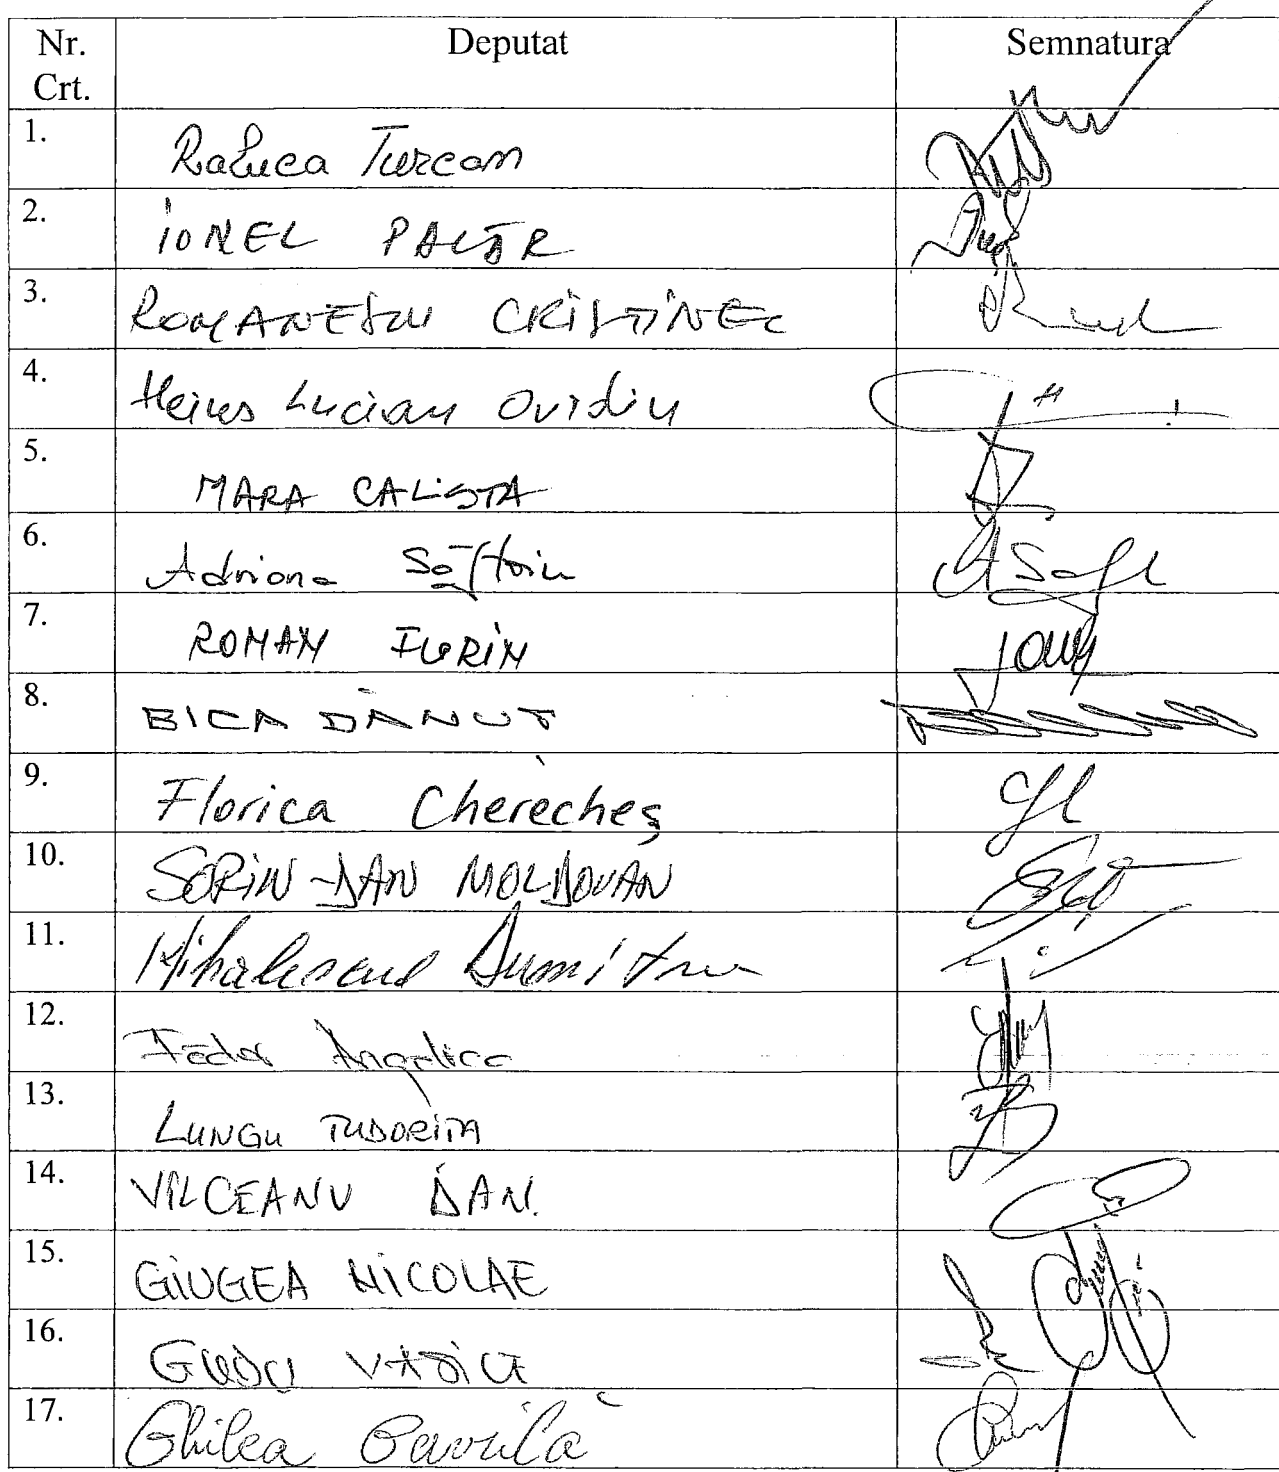 Nr. Crt. Deputat Semnatura
1. Raluca Turcan
2. IONEL PALĂR
3. ROMANESCU CRISTINEL
4. Heius Lucian Ovidiu
5. MARA CALISTA
6. Adriana Săftoiu
7. ROMAN FLORIN
8. BICA DĂNUT
9. Florica Cherecheș
10. SORIN-DAN MOLDOVAN
11. Mihalescul Dumitru
12. Fădor Angelica
13. LUNGU TUDORIȚA
14. VILCEANU DAN.
15. GIUGEA NICOLAE
16. GUDU VASILE
17. Ghilea Gavrilă